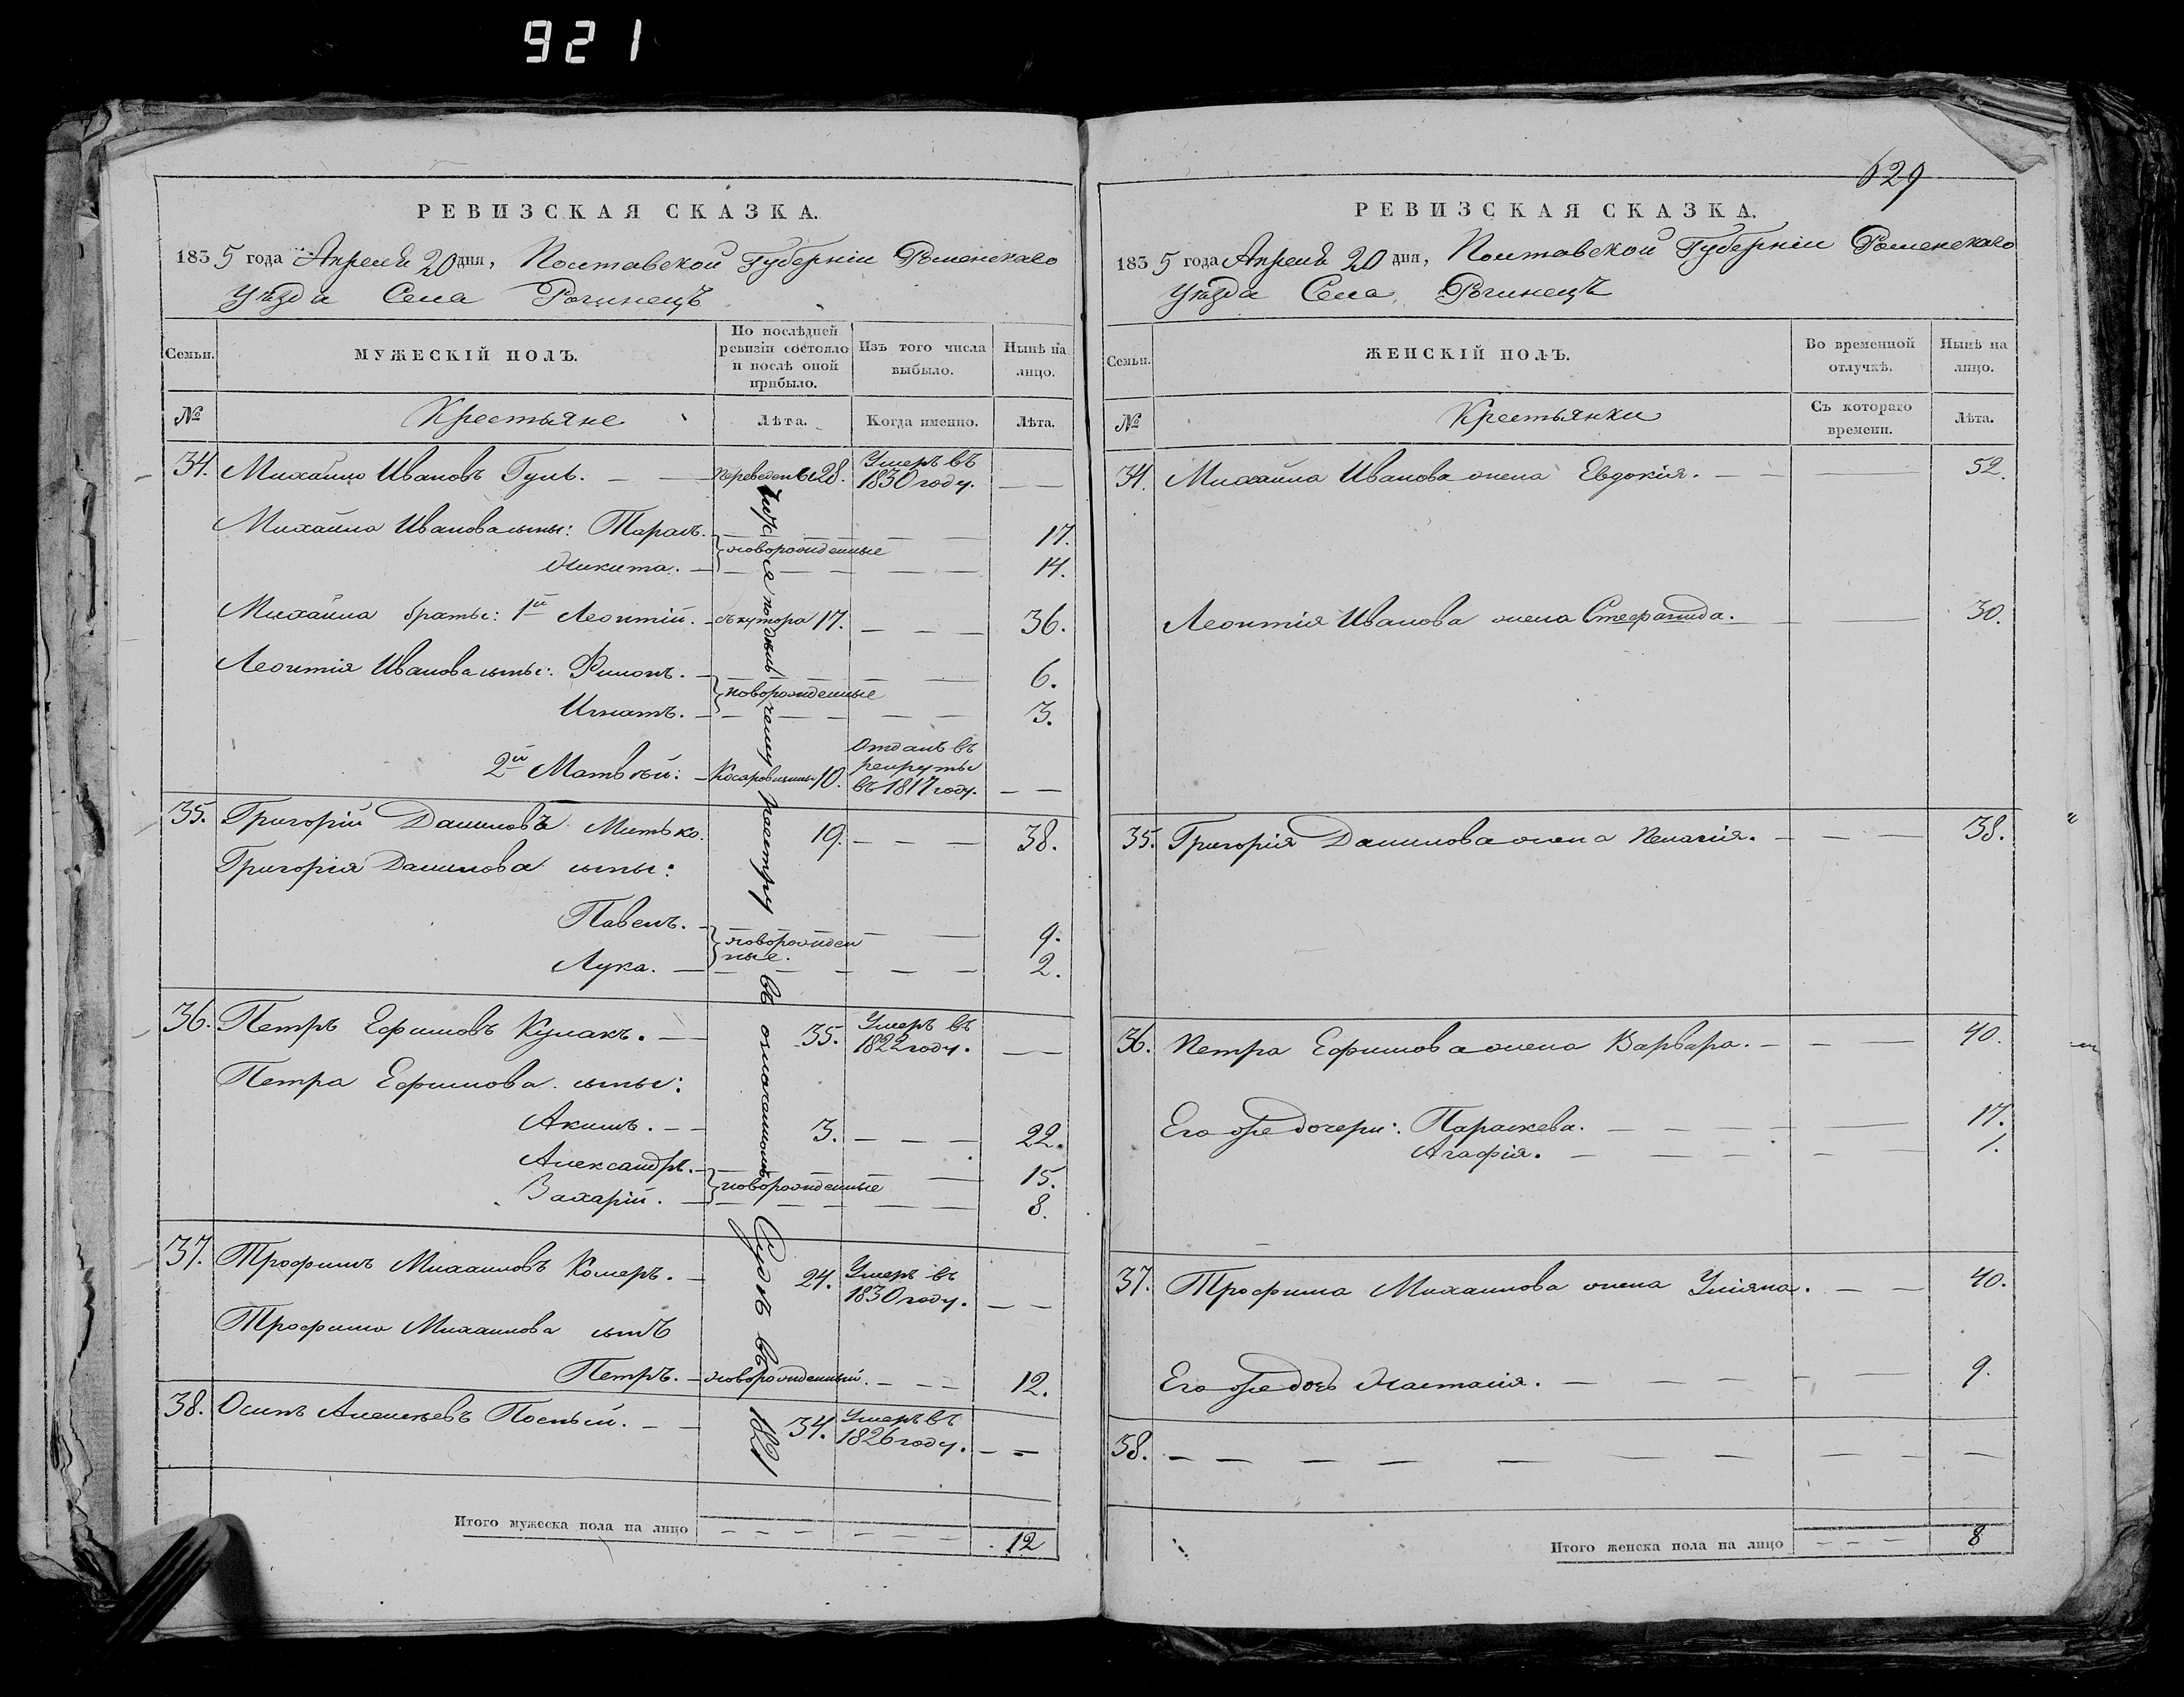 921
РЕВИЗСКАЯ СКАЗКА.
1835 года Апреля 20 дня, Полтавской Губерніи Роменскаго
Уѣзда Села Рогинецъ
Семьи.
МУЖЕСКІЙ ПОЛЪ.
По послѣдней ревизіи состояло и послѣ оной прибыло.
Изъ того числа выбыло.
Нынѣ на лицо.
№
Крестьяне
Лѣта.
Когда именно.
Лѣта.
34. Михайло Ивановъ Гуль. 28. Умеръ въ 1830 году.
Михайла Иванова сыны: Тарасъ. 17.
новорожденные
Никита. 14.
Михайла братья: 1й Леонтій. съ хутора 17. 36.
Леонтія Иванова сыны: Филонъ. 6.
новорожденные
Игнатъ. 3.
2й Матвѣй: 10. Отданъ въ рекруты въ 1817 году.
35. Григорій Даниловъ Митько. 19. 38.
Григорія Данилова сыны:
Павелъ. 9.
новорожденные.
Лука. 2.
36. Петръ Ефимовъ Кулакъ. 35. Умеръ въ 1822 году.
Петра Ефимова сыны:
Акимъ. 3. 22.
Александръ. 15.
новорожденные
Захарій. 8.
37. Трофимъ Михайловъ Комеръ. 24. Умеръ въ 1830 году.
Трофима Михайлова сынъ
Петръ. новорожденный. 12.
38. Осипъ Алексѣевъ 34. Умеръ въ 1826 году.
Итого мужеска пола на лицо 12
въ 1821
629
РЕВИЗСКАЯ СКАЗКА.
1835 года Апреля 20 дня, Полтавской Губерніи Роменскаго
Уѣзда Села Рогинецъ
Семьи.
ЖЕНСКІЙ ПОЛЪ.
Во временной отлучкѣ.
Нынѣ на лицо.
№
Крестьянки
Съ котораго времени.
Лѣта.
34. Михайла Иванова жена Евдокія. 52.
Леонтія Иванова жена Стефанида. 30.
35. Григорія Данилова жена Пелагія. 38.
36. Петра Ефимова жена Варвара. 40.
Его же дочери: Параскева. 17.
Агафія. 1.
37. Трофима Михайлова жена Уліяна. 40.
Его же дочь Настасія. 9.
38.
Итого женска пола на лицо 8